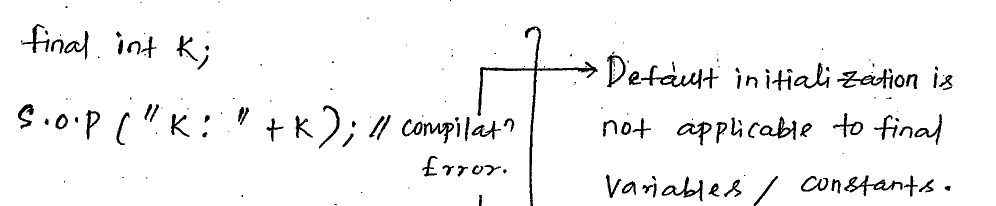 final int K;
S.O.P ("K: " + K); // compilatn
Error.
Default initialization is
not applicable to final
Variables / constants.